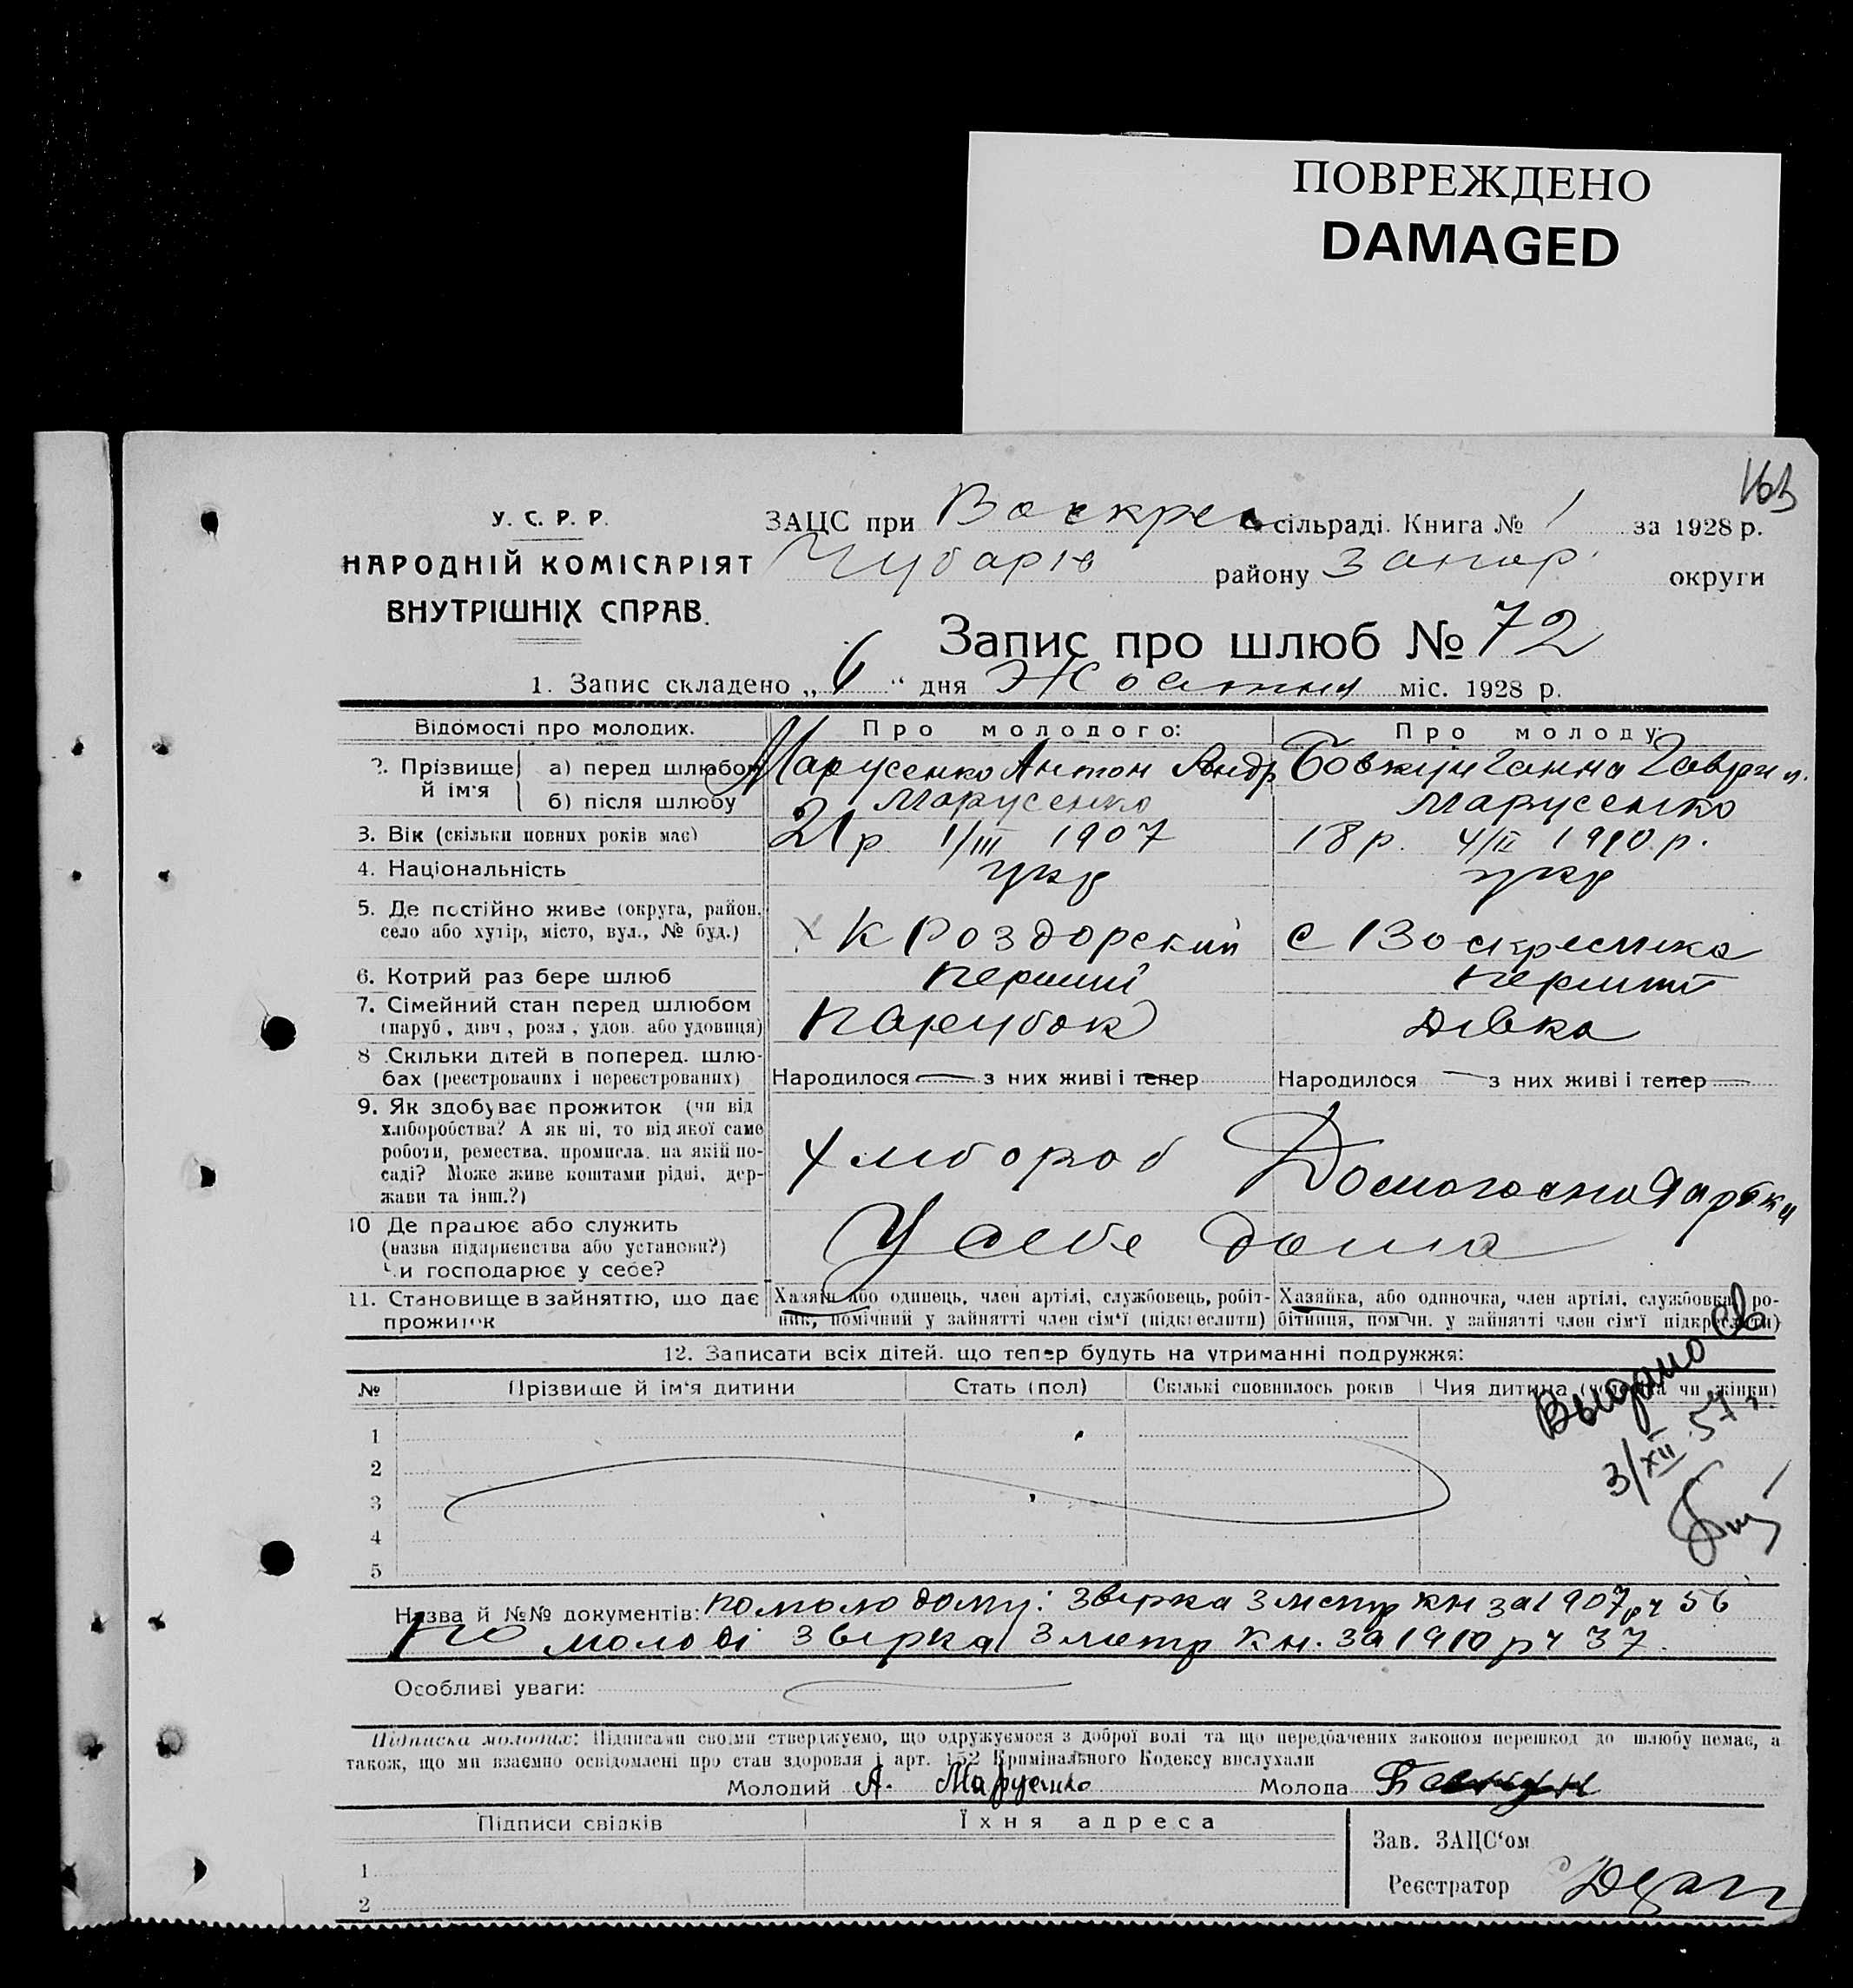 ПОВРЕЖДЕНО
DAMAGED
163
У. С. Р. Р.
НАРОДНІЙ КОМІСАРІЯТ
ВНУТРІШНІХ СПРАВ.
ЗАЦС при Воскрес сільраді. Книга № 1 за 1928 р.
Чубарів району Запор. округи
Запис про шлюб № 72
1. Запис складено „6“ дня Жовтня міс. 1928 р.
Відомості про молодих. Про молодого: Про молоду:
2. Прізвище й ім'я
а) перед шлюбом Марусенко Антон Андр Бовкун Ганна Гаврил.
б) після шлюбу Марусенко Марусенко
3. Вік (скільки повних років має) 21 р 1/III 1907 18 р. 4/II 1910 р.
4. Національність укр укр
5. Де постійно живе (округа, район,
село або хутір, місто, вул., № буд.) х К Роздорський с Воскресенка
6. Котрий раз бере шлюб перший перший
7. Сімейний стан перед шлюбом
(паруб, дівч, розл, удов. або удовиця) парубок дівка
8 Скільки дітей в поперед. шлю-
бах (реєстрованих і нереєстрованих) Народилося — з них живі і тепер Народилося — з них живі і тепер —
9. Як здобуває прожиток (чи від
хліборобства? А як ні, то від якої саме
роботи, ремества, промисла, на якій по-
саді? Може живе коштами рідні, дер-
жави та інш.?) Хлібороб Домогосподарка
10 Де працює або служить
(назва підприємства або установи?)
Чи господарює у себе? У себе дома
11. Становище в зайняттю, що дає
прожиток
Хазяїн або одинець, член артілі, службовець, робіт-
ник, помічний у зайнятті член сім'ї (підкреслити)
Хазяйка, або одиночка, член артілі, службовка, ро-
бітниця, помічн. у зайнятті член сім'ї підкреслити)
12. Записати всіх дітей, що тепер будуть на утриманні подружжя:
№ Прізвище й ім'я дитини Стать (пол) Скількі сповнилось років Чия дитина (чоловіка чи жінки)
1
2
3
4
5
Выдано св
3/XII 57 г.
Назва й №№ документів: По молодому: звірка з метр кн за 1907 р ч 56
По молоді звірка з метр кн. за 1910 р ч 37.
Особливі уваги:
Підписка молодих: Підписами своїми стверджуємо, що одружуємося з доброї волі та що передбачених законом перешкод до шлюбу немає, а
також, що ми взаємно освідомлені про стан здоровля і арт. 152 Кримінального Кодексу вислухали
Молодий А. Марусенко Молода Бовкун
Підписи свідків Їхня адреса
Зав. ЗАЦС'ом
1
Реєстратор
2